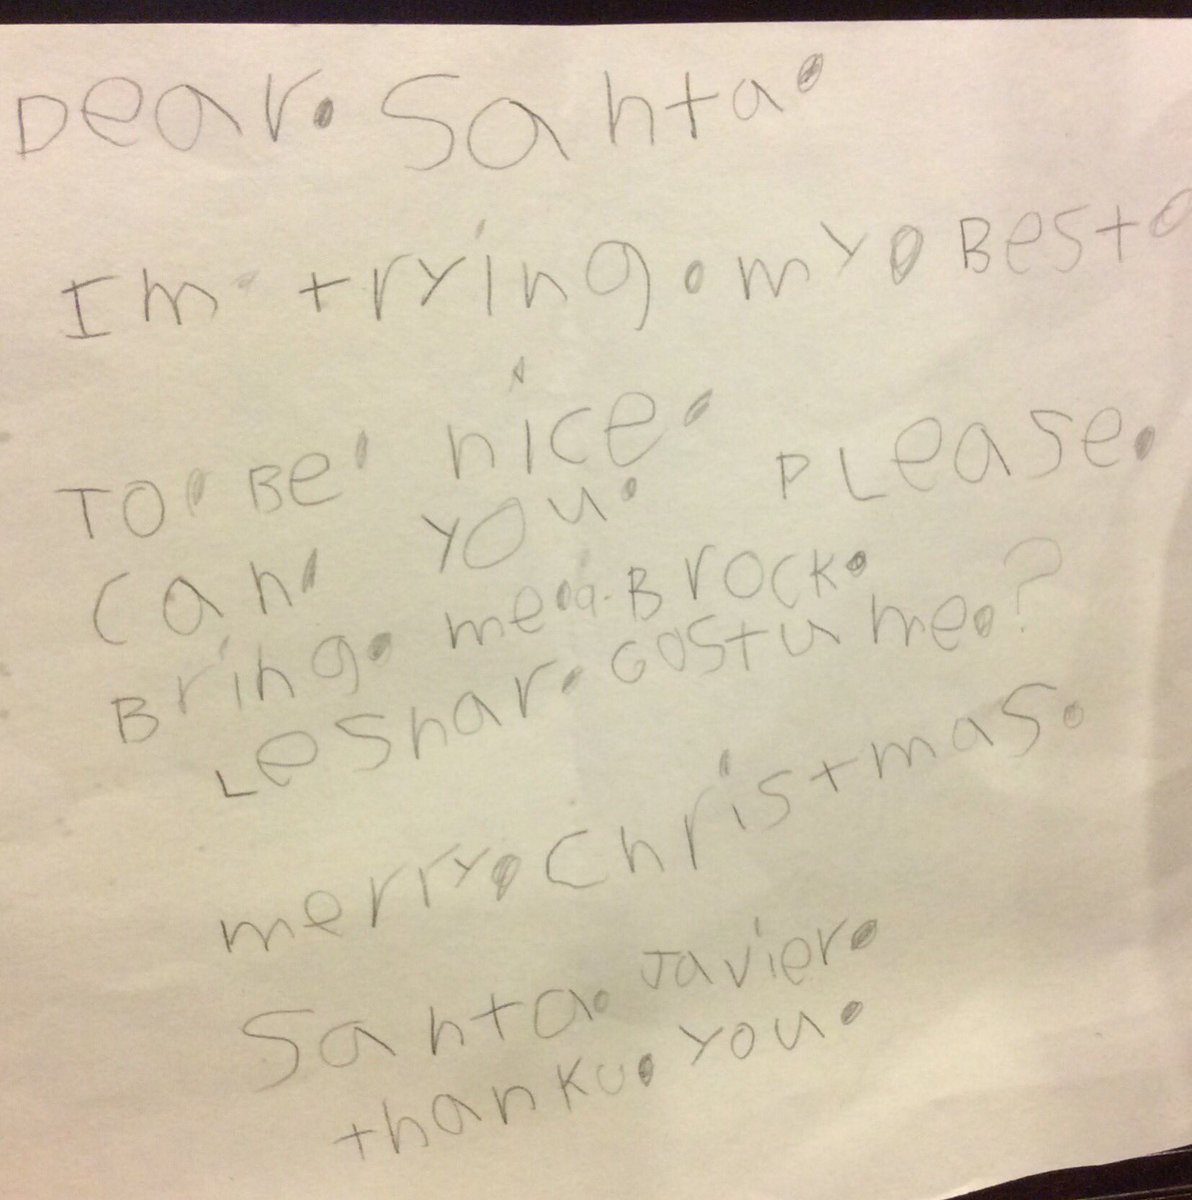 Dear. Santa.
Im trying. my. Best.
To. Be. nice.
Can. you. PLease.
Bring. me. a. Brock.
Leshar. costume.?
merry. Christmas.
Santa. Javier.
thanku. you.